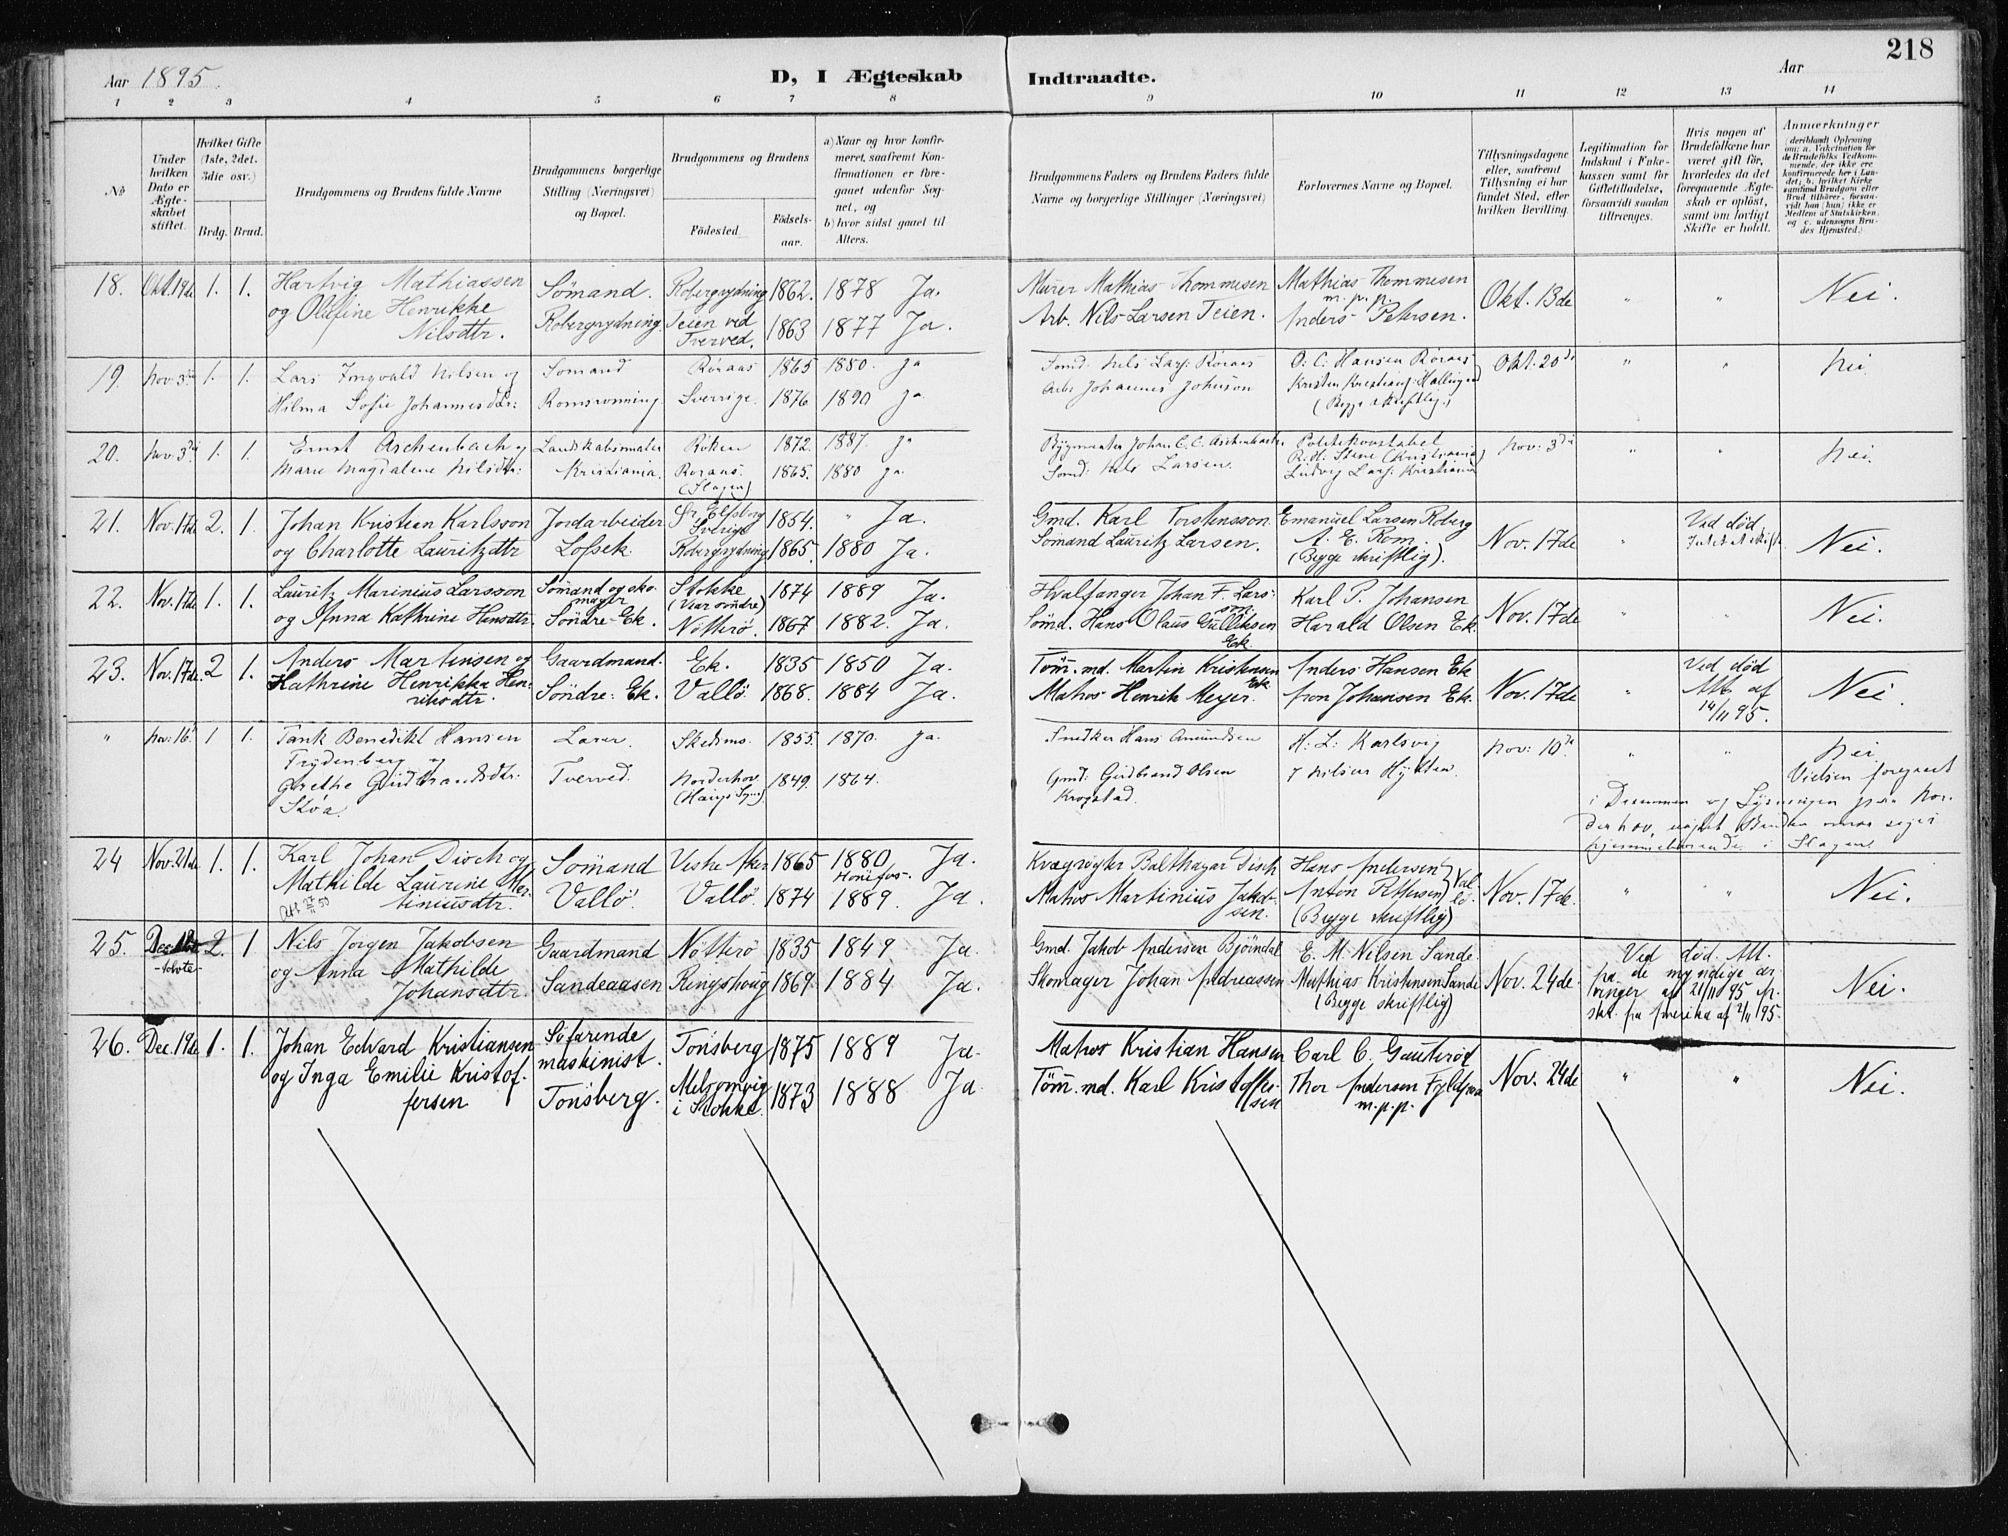 218
Aar 1895.
D, I Ægteskab Indtraadte.
Aar
1 2 3 4 5 6 7 8 9 10 11 12 13 14
No
Under hvilken Dato er Ægteskabet stiftet.
Hvilket Gifte (1ste, 2det, 3die osv.)
Brdg. Brud.
Brudgommens og Brudens fulde Navne
Brudgommens borgerlige Stilling (Næringsvei) og Bopæl.
Brudgommens og Brudens
Fødested. Fødselsaar.
a) Naar og hvor konfirmeret, saafremt Konfirmationen er foregaaet udenfor Sognet, og
b) hvor sidst gaaet til Alters.
Brudgommens Faders og Brudens Faders fulde Navne og borgerlige Stillinger (Næringsvei)
Forlovernes Navne og Bopæl.
Tillysningsdagene eller, saafremt Tillysning ei har fundet Sted, efter hvilken Bevilling.
Legitimation for Indskud i Enkekassen samt for Giftetilladelse, forsaavidt saadan tiltrænges.
Hvis nogen af Brudefolkene har været gift før, hvorledes da det foregaaende Ægteskab er opløst, samt om lovligt Skifte er holdt.
Anmerkninger
18. Okt. 19de 1. 1. Hartvig Mathiassen Sömand. Robergrydning 1862. 1878 Ja. Murer Mathias Thommesen Mathias Thommesen m.p.p. Okt. 13de " " Nei.
og Olufine Henrikke Nilsdtr. Robergrydning Teien ved Tverved. 1863 1877 Ja. Arb. Nils Larsen Teien. Anders Petersen.
19. Nov 3de 1. 1. Lars Ingvald Nilsen og Sömand Röraas 1865 1880. ja Sömd. Nels Lars: Röraas O. C. Hansen Röraas Okt. 20de " " Nei
Hilma Sofie Johannesdtr: Romsrönning Sverrige. 1876 1890 ja Arb. Johannes Johnson (Begge skriftlig.)
20. Nov. 3de 1. 1. Ernst Aschenbach og Landskabsmaler Röken 1872. 1887. ja Bygmester Johan C. C. Aschenbach Politikonstabel Nov: 3de " " Nei.
Marie Magdalene Nilsdtr: Kristiania. Röraas (Slagen) 1865. 1880 ja. Sömd: Nels Larsen. Ludvig Lars: Kristiania
21. Nov. 17de 2. 1. Johan Kristian Karlsson Jordarbeider Sr. Elfsborg Sverige 1854. " Ja. Gmd. Karl Torstensson Emanuel Larsen Roberg Nov. 17de " Ved död Nei.
og Charlotte Lauritzdtr Lofsek. Robergrydning 1865. 1880 Ja. Sömand Lauritz Larsen. A. E. Rom. (Begge skriftlig).
22. Nov. 17de 1. 1. Lauritz Marinius Larsson Sömand og skomager Stokke (Viar söndre) 1874 1889 Ja. Hvalfanger Johan F. Larsson Karl P. Johansen Nov. 17de " " Nei.
og Anna Kathrine Hansdtr. Söndre Ek. Nötterö. 1867 1882. Ja. Sömd. Hans Olaus Gulliksen Ek. Harald Olsen Ek.
23. Nov. 17de 2 1. Anders Martinsen og Gaardmand. Ek. 1835 1850 Ja. Töm. md. Martin Kristensen Ek. Anders Hansen Ek Nov. 17de " Ved död Att. af 14/11 95. Nei.
Kathrine Henrikke Henriksdtr. Söndre: Ek. Vallö 1868. 1884 Ja. Matros Henrik Meyer. Johansen Ek.
" Nov: 16. 1 1. Tank Benedikt Hansen Lærer. Skedsmo. 1855. 1870. ja. Snedker Hans Amundsen H: L: Karlsvig Nov: 10de " " Nei
Frydenberg og Grethe Gudbrandsdtr: Stöa. Tverved. Norderhov 1849. 1864. Gmd: Gudbrand Olsen Krogstad. Nilsen Vielsen foregaaet
i Drammen og Lysningen fra Norderhov, hjemmehörende i Slagen
24 Nov. 21de 1. 1. Karl Johan Disch og Sömand Vestre Aker 1865 1880 Hönefos. Ja. Kvægrögter Balthazar Disch Hans Andersen Nov. 17de. " " Nei.
Mathilde Laurine Martiniusdtr. Vallö. Vallö. 1874 1889. Ja. Matros Martinius Jakobsen. Anton Pettersen Vallö. (Begge skriftlig)
25. 2. 1 Nils Jörgen Jakobsen Gaardmand Nötterö 1835 1849 Ja. Gmd. Jakob Andersen Bjöndal E. M. Nilsen Sande Nov. 24de Ved död. Att. fra de myndige arvinger af 21/11 95 Nei.
og Anna Mathilde Johansdtr. Sandeaasen Ringshoug 1869. 1884 Ja. Skomager Johan Andreassen Mathias Kristensen Sande (Begge skriftlig) fra Amerika af 2/11 95.
26. Dec. 19de 1. 1. Johan Edvard Kristiansen Söfarende maskinist. Tönsberg 1875 1889 Ja. Matros Kristian Hansen Carl C. Gauteröd Nov. 24de " " Nei.
og Inga Emilie Kristoffersen Tönsberg. Melsomvig i Stokke. 1873 1888 Ja. Töm. md. Karl Kristoffersen Thor Andersen m.p.p.